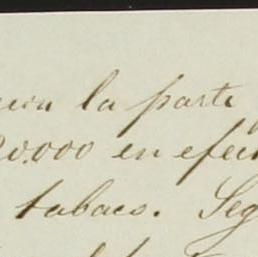 la parte
20.000 en efec
tabaco. Seg